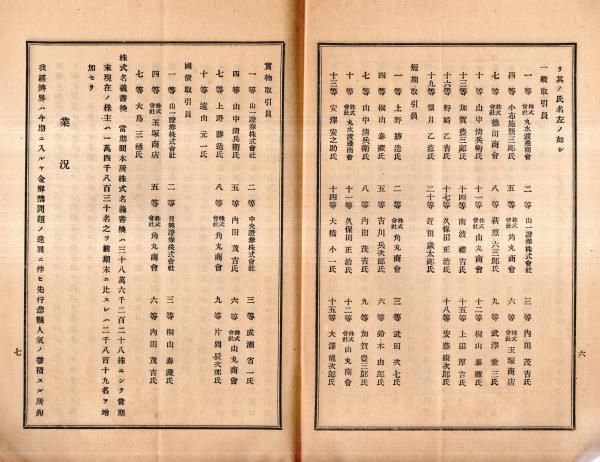 リ其ノ氏名左ノ如シ
一般取引員
一等 株式會社丸水渡邊商會 二等 山一證券株式會社 三等 内田茂吉氏
四等 小布施新三郎氏 五等 株式會社角丸商會 六等 株式會社玉塚商店
七等 株式會社德田商會 八等 萩原六三郎氏 九等 武澤
十等 山中清兵衛氏 十一等 株式會社山丸商會 十二等 桐山泰藏氏
十三等 加賀豊三郎氏 十四等 南波禮吉氏 十五等 上田厚吉氏
十六等 野崎乙吉氏 十七等 久保田正治氏 十八等 安藤
十九等 望月乙 二十等 近田
短期取引員
一等 上野勝造氏 二等 株式會社角丸商會 三等 武田次七氏
四等 桐山泰藏氏 五等 吉川兵次郎氏 六等 鈴木由郎氏
七等 山中清兵衛氏 八等 内田茂吉氏 九等 加賀豊三郎氏
十等 株式會社丸水渡邊商會 十一等 久保田正治氏 十二等 株式會社山丸商會
十三等 安澤安之助氏 十四等 大橋小一氏 十五等 大澤龍次郎氏
六
實物取引員
一等 山一證券株式會社 二等 中央證券株式會社 三等 成瀬省一氏
四等 山中清兵衛氏 五等 内田茂吉氏 六等 株式會社山丸商會
七等 上野勝造氏 八等 株式會社角丸商會 九等 片岡辰次郎氏
十等 遠山元一氏
國債取引員
一等 山一證券株式會社 二等 日興證券株式會社 三等 桐山泰藏氏
四等 株式會社玉塚商店 五等 株式會社角丸商會 六等 内田茂吉氏
七等 大島三
株式名義書換 當期間本所株式名義書換ハ三十八萬六千二百二十八株ニシテ當期
末現在ノ株主ハ一萬四千八百三十名之ヲ前期末ニ比スレハ二千八百十九名ヲ增
加セリ
業況
我經濟界ハ今期ニ入ルヤ金解禁問題ノ進展ニ伴ヒ先行悲觀人氣ノ蓄積スル所洵
七